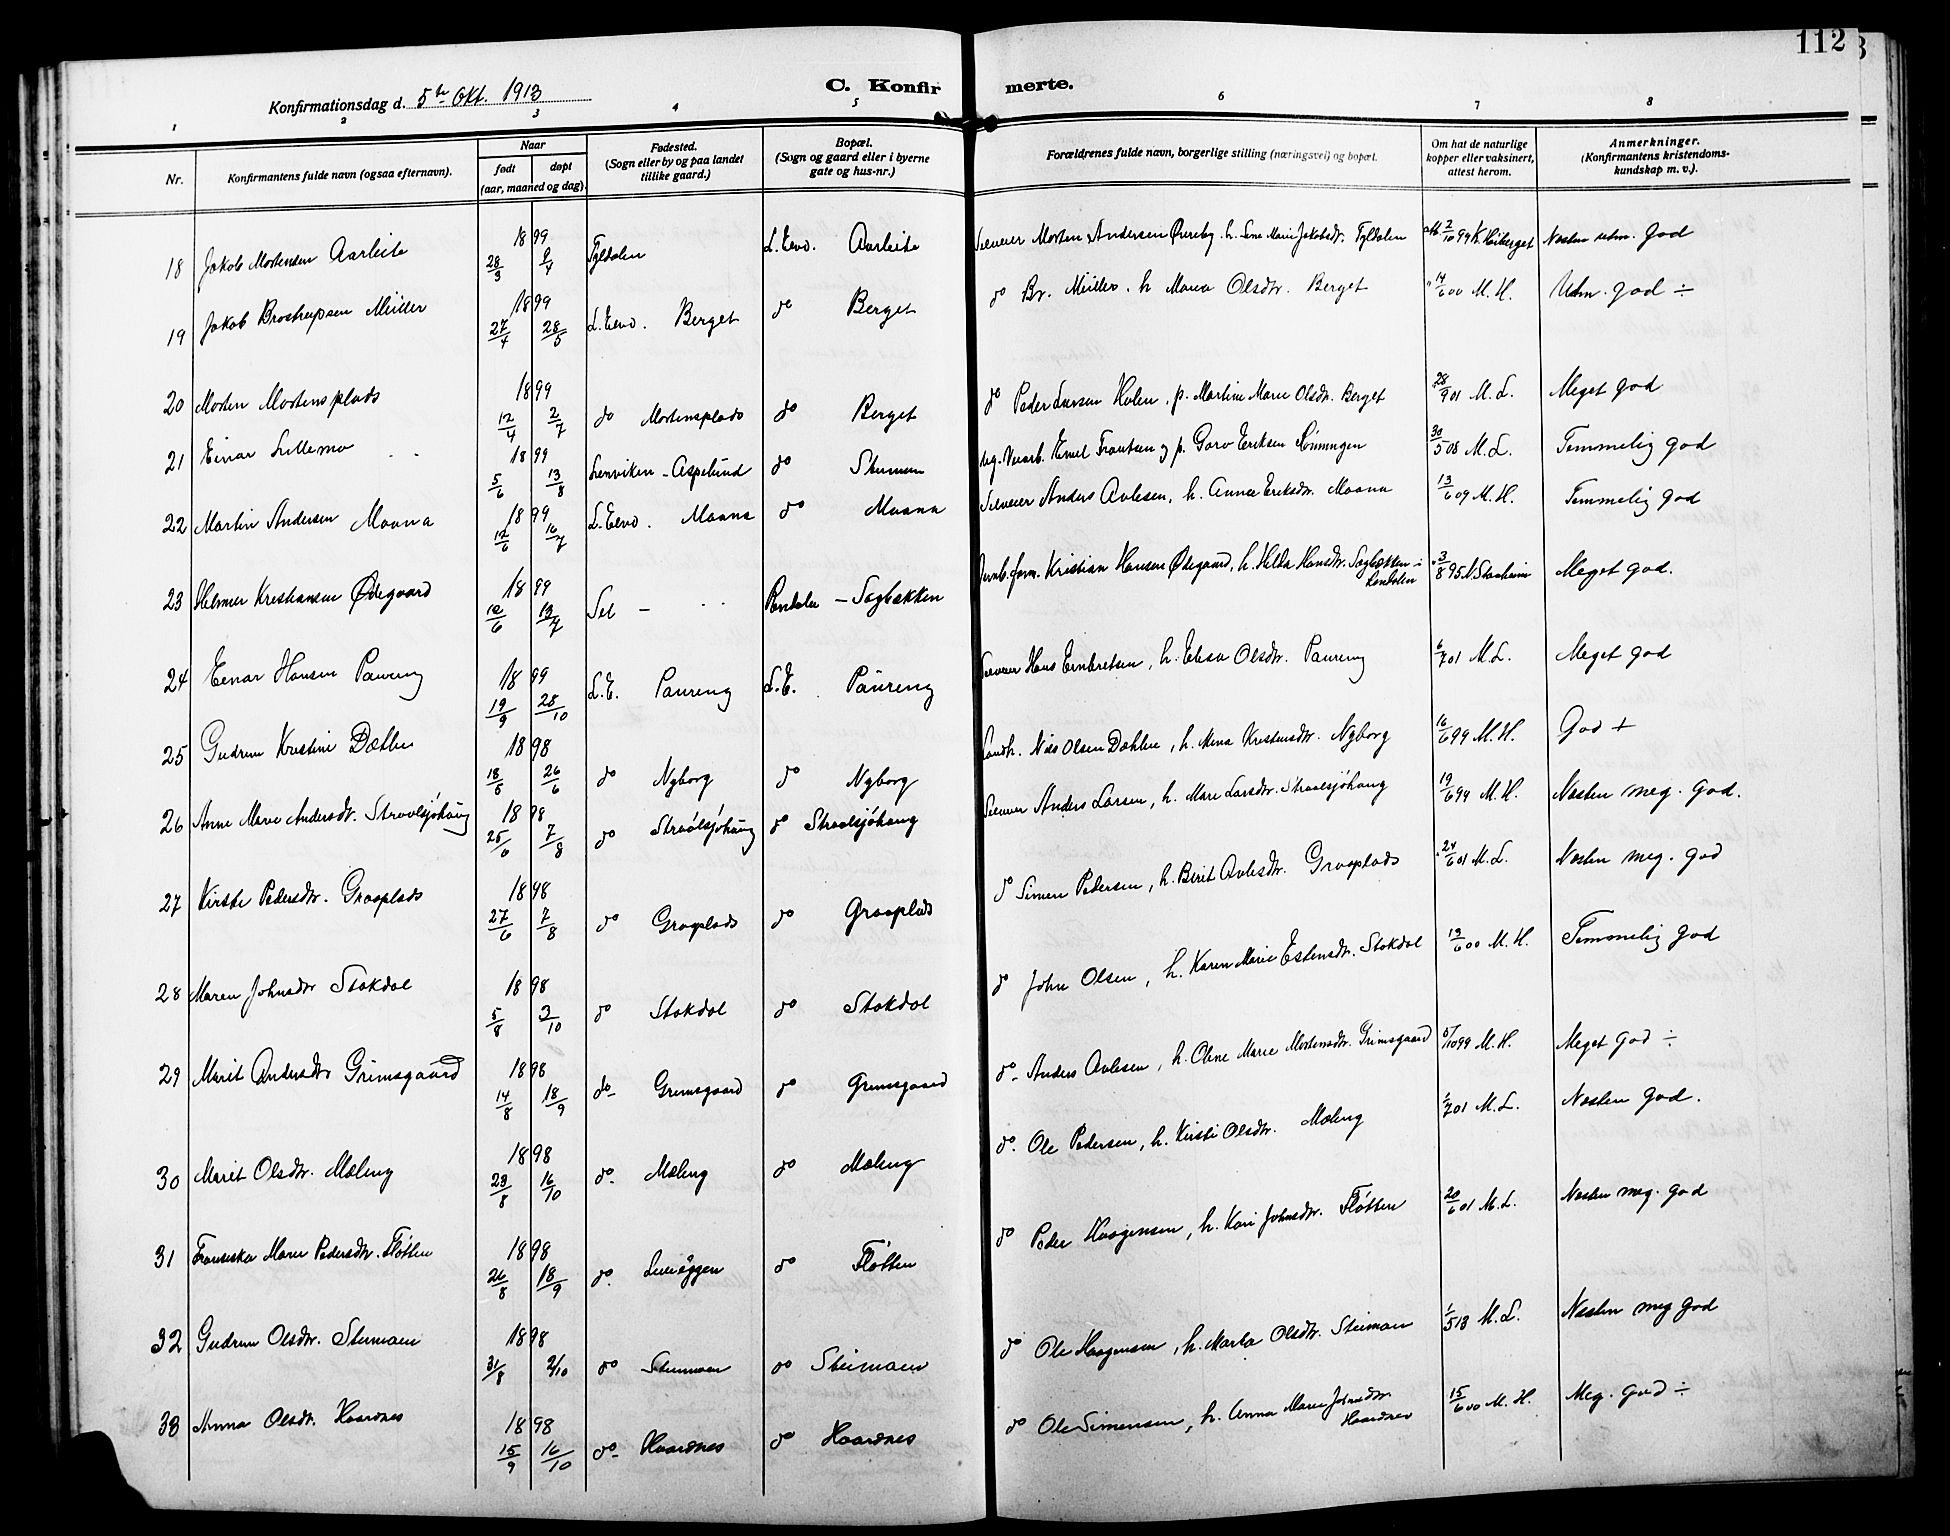 112
Konfirmationsdag d. 5te Okt. 1913
C. Konfirmerte.
1 2 3 4 5 6 7 8
Nr.
Konfirmantens fulde navn (ogsaa efternavn).
Naar
født døpt
(aar, maaned og dag).
Fødested.
(Sogn eller by og paa landet
tillike gaard.)
Bopæl.
(Sogn og gaard eller i byerne
gate og hus-nr.)
Forældrenes fulde navn, borgerlige stilling (næringsvei) og bopæl.
Om hat de naturlige
kopper eller vaksinert,
attest herom.
Anmerkninger.
(Konfirmantens kristendoms-
kundskap m. v.).
18 Jakob Mortensen Aarleite 1899 28/3 Tyldalen L. Elvd. Aarleite Selveier Morten Andersen h. Lene Marie Jakobsdtr. Tyldalen Næsten udm. god
19 Jakob Müller 1899 27/4 28/5 L. Elvd. Berget do Berget do Br. Müller. h Maria Olsdtr. Berget 14/6 00 M. H. Udm. god ÷
20 Morten Mortensplads 1899 12/4 2/7 do Mortensplads do Berget do Peder Larsen Holen, p. Martine Marie Olsdtr. Berget 28/9 01 M. L. Meget god
21 Einar Lillemo 1899 5/6 13/8 Lenviken - Aspelund do Steimoen Emil Frantsen og p. Goro Eriksen 30/5 08 M. L. Temmelig god
22 Martin Andersen Moana 1899 12/6 16/7 L. Elvd. Moana do Moana Selveier Anders Avlesen, h. Anna Eriksdtr. Moana 13/6 09 M. H. Temmelig god
23 Helmer Kristiansen Ødegaard 1899 12/6 13/7 Sel - Rendalen - Sagbækken Kristian Hansen Ødegaard, h. Hilda Hansdtr. Sagbækken i
Rendalen 3/8 95 Meget god.
24 Einar Hansen Paureng 1899 19/9 28/10 L. E. Paureng L. E. Paureng Selveier Hans Embretsen, h. Elisa Olsdtr. Paureng 6/7 01 M. L. Meget god
25 Gudrun Kristine Dæhlie 1898 18/5 26/6 do Nyborg do Nyborg Landh. Nils Olsen Dæhlie, h. Mina Kristensdtr. Nyborg 16/6 99 M. H. God +
26 Anne Marie Andersdtr. Straalsjøhaug 1898 25/6 7/8 do Straalsjøhaug do Straalsjøhaug Selveier Anders Larsen, h. Mari Larsdtr. Straalsjøhaug 19/6 99 M. H. Næsten meg. god.
27 Kirsti Pedersdtr. Graaplads 1898 27/6 7/8 do Graaplads do Graaplads do Simen Pedersen, h. Berit Avlesdtr. Graaplads 24/6 01 M. L. Næsten meg. god
28 Maren Johnsdtr Stokdal 1898 5/8 3/10 do Stokdal do Stokdal do John Olsen, h. Karen Marie Estensdtr. Stokdal 13/6 00 M. H. Temmelig god
29 Marit Andersdtr Grimsgaard 1898 14/8 18/9 do Grimsgaard do Grimsgaard do Anders Avlesen, h. Oline Marie Mortensdtr. Grimsgaard /10 99 M. H. Meget god ÷
30 Marit Olsdtr. Mæleng 1898 23/8 16/10 do Mæleng do Mæleng do. Ole Pedersen, h. Kirsti Olsdtr. Mæleng 1/7 01 M. L. Næsten god.
31 Fransiska Marie Pedersdtr. Fløtten 1898 26/8 18/9 do. do Fløtten do Peder Haagensen, h. Kari Johnsdtr. Fløtten 20/6 01 M. L. Næsten meg. god
32 Gudrun Olsdtr. Steimoen 1898 31/8 2/10 do Steimoen do Steimoen do Ole Haagensen, h. Marta Olsdtr. Steimoen 1/5 13 M. L. Næsten meg god
33 Anna Olsdtr. Haardnes 1898 15/9 16/10 do Haardnes do Haardnes do Ole Simensen, h. Anna Marie Johnsdtr.
Haardnes 15/6 00 M. H. Meg. god ÷